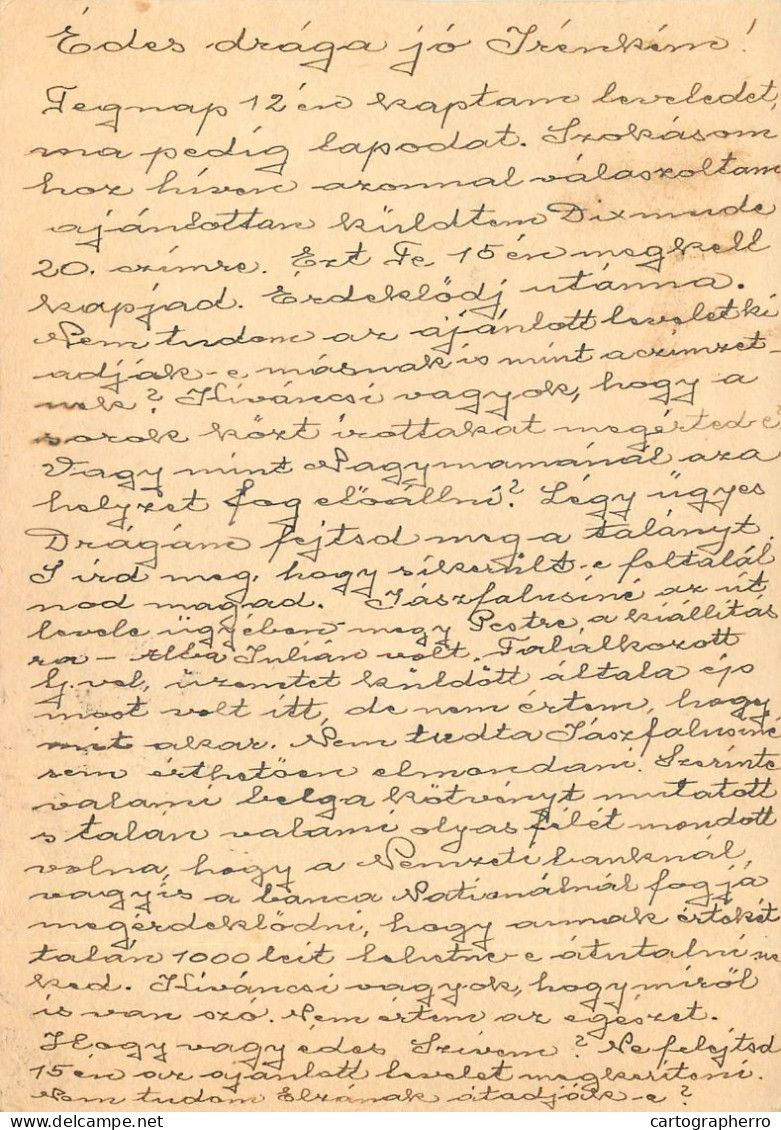 Édes drága jó Irénkém!
Tegnap 12 én kaptam leveledet,
ma pedig lapodat. Szokásom
hoz híven azonnal válaszoltam
ajánlottan küldtem Dixmude
20. címre. Ezt Te 15 én megkell
kapjad. Érdeklődj utánna.
Nem tudom az ajánlott levelet ki
adják-e másnak is mint a czímzet-
nek? Kíváncsi vagyok, hogy a
sorok közt írottakat megérted-e?
Vagy mint Nagymamánál az a
helyzet fog előállni? Légy ügyes
Drágám fejtsd meg a talányt.
S ird meg, hogy sikerült-e feltalál
nod magad. Jászfalusiné az út
levele ügyében megy Pestre a kiállítás
ra - Alba Julián volt. Találkozott
G. vel, üzenetet küldött általa épp
most volt itt, de nem értem, hogy
mit akar. Nem tudta Jászfalusiné
sem érthetően elmondani. Szerinte
valami belga kötvényt mutatott
s talán valami olyas félét mondott
volna, hogy a Nemzeti banknál,
vagyis a banca Nationálnál fogja
megérdeklődni, hogy annak értékét
talán 1000 leit lehetne-e átutalni ne
ked. Kíváncsi vagyok, hogy miről
is van szó. Nem értem az egészet.
Hogy vagy édes Szívem? Ne felejtsd
15 én az ajánlott levelet megkeríteni.
Nem tudom Elzának átadják-e?
cartographerro